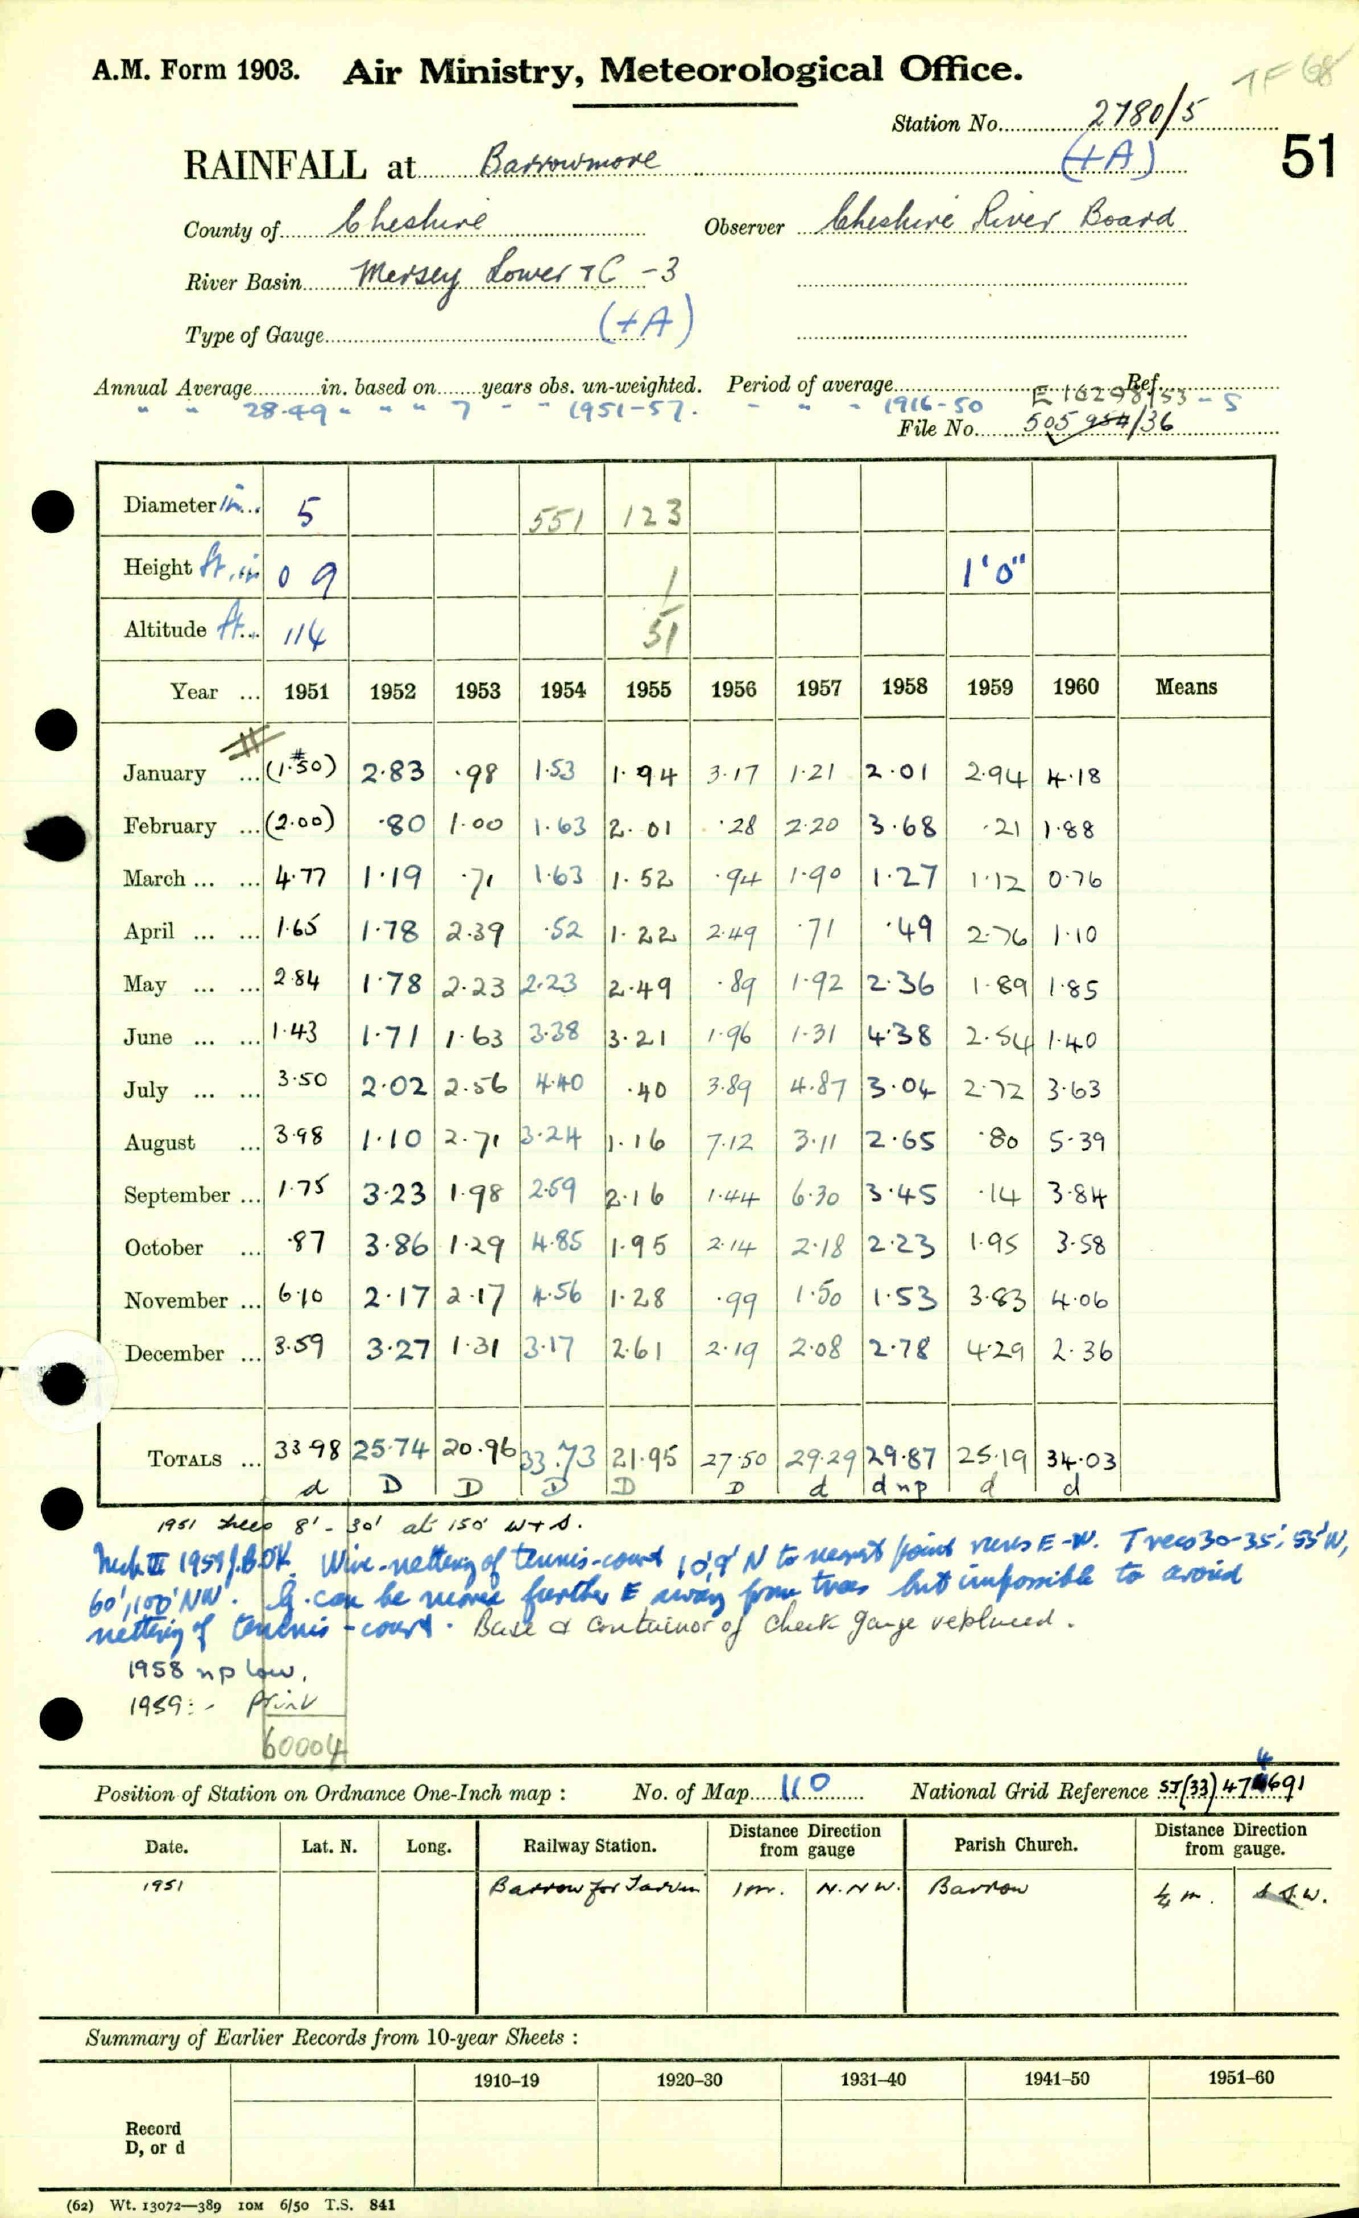 A.M. Form 1903. Air Ministry, Meteorological Office.
TF 68
Station No. 2780/5
51
RAINFALL at Barrowmore (+A)
County of Cheshire Observer Cheshire River Board
River Basin Mersey Lower + C - 3
Type of Gauge (+A)
Annual Average in. based on years obs. un-weighted. Period of average Ref.
" " 28.49 " " 7 " " 1951-57. " " " 1916-50 E 16298/53-5
File No. 505954/36
Diameter in. 5 551 123
Height ft, in 0 9 1 1'0"
Altitude ft. 114 51
Year ... 1951 1952 1953 1954 1955 1956 1957 1958 1959 1960 Means
January ... (1.50) 2.83 .98 1.53 1.94 3.17 1.21 2.01 2.94 4.18
February ... (2.00) .80 1.00 1.63 2.01 .28 2.20 3.68 .21 1.88
March ... ... 4.77 1.19 .71 1.63 1.52 .94 1.90 1.27 1.12 0.76
April ... ... 1.65 1.78 2.39 .52 1.22 2.49 .71 .49 2.76 1.10
May ... ... 2.84 1.78 2.23 2.23 2.49 .89 1.92 2.36 1.89 1.85
June ... ... 1.43 1.71 1.63 3.38 3.21 1.96 1.31 4.38 2.54 1.40
July ... ... 3.50 2.02 2.56 4.40 .40 3.89 4.87 3.04 2.72 3.63
August ... 3.98 1.10 2.71 3.24 1.16 7.12 3.11 2.65 .80 5.39
September ... 1.75 3.23 1.98 2.59 2.16 1.44 6.30 3.45 .14 3.84
October ... .87 3.86 1.29 4.85 1.95 2.14 2.18 2.23 1.95 3.58
November ... 6.10 2.17 2.17 4.56 1.28 .99 1.50 1.53 3.83 4.06
December ... 3.59 3.27 1.31 3.17 2.61 2.19 2.08 2.78 4.29 2.36
TOTALS ... 33.98 25.74 20.96 33.73 21.95 27.50 29.29 29.87 25.19 34.03
d D D D D D d d np d d
1951 trees 8' - 30' at 150' W + S.
III 1959 J.B.OK. Wire-netting of tennis-court 10', 9' N to nearest point runs E-W. Trees 30-35', 55' W,
60', 100' NW. G. can be moved further E away from trees but impossible to avoid
netting of tennis-court. Base & container of check gauge replaced.
1958 np low.
1959:- Print
60004
Position of Station on Ordnance One-Inch map : No. of Map 110 National Grid Reference SJ(33) 474691
Date. Lat. N. Long. Railway Station. Distance Direction from gauge Parish Church. Distance Direction from gauge.
1951 Barrow for Tarvin 1 m. N.N.W. Barrow ¼ m. S.W.
Summary of Earlier Records from 10-year Sheets :
1910–19 1920–30 1931–40 1941–50 1951–60
Record
D, or d
(62) Wt. 13072—389 10M 6/50 T.S. 841